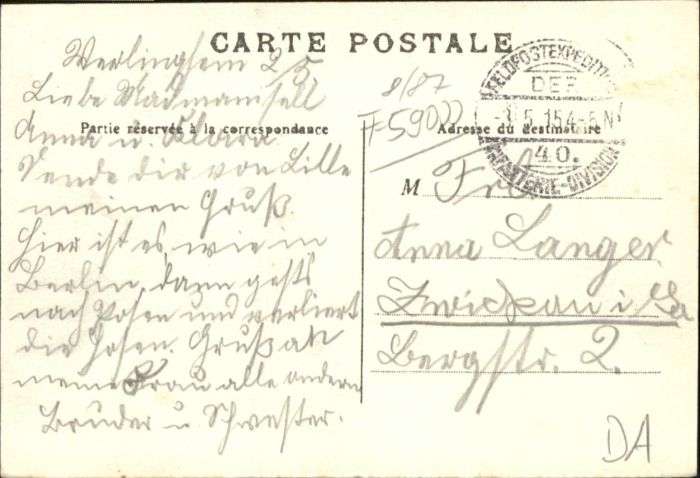 CARTE POSTALE
Partie réservée à la correspondance
Adresse du destinataire
M
Verlinghem 2/5.
Liebe Madmamsell
Anna u. Klara.
Sende dir von Lille
meinen Gruß.
Hier ist es wie in
Berlin, dann gehts
nach Posen und verliert
die Hosen. Gruß an
meine Frau alle andern
Bruder u Schwester.
8/87
F=59000
FELDPOSTEXPEDITION
DER
5.15 4-5N
40.
INFANTERIE-DIVISION
Frl.
Anna Langer
Zwickau i/Sa
Bergstr. 2.
DA